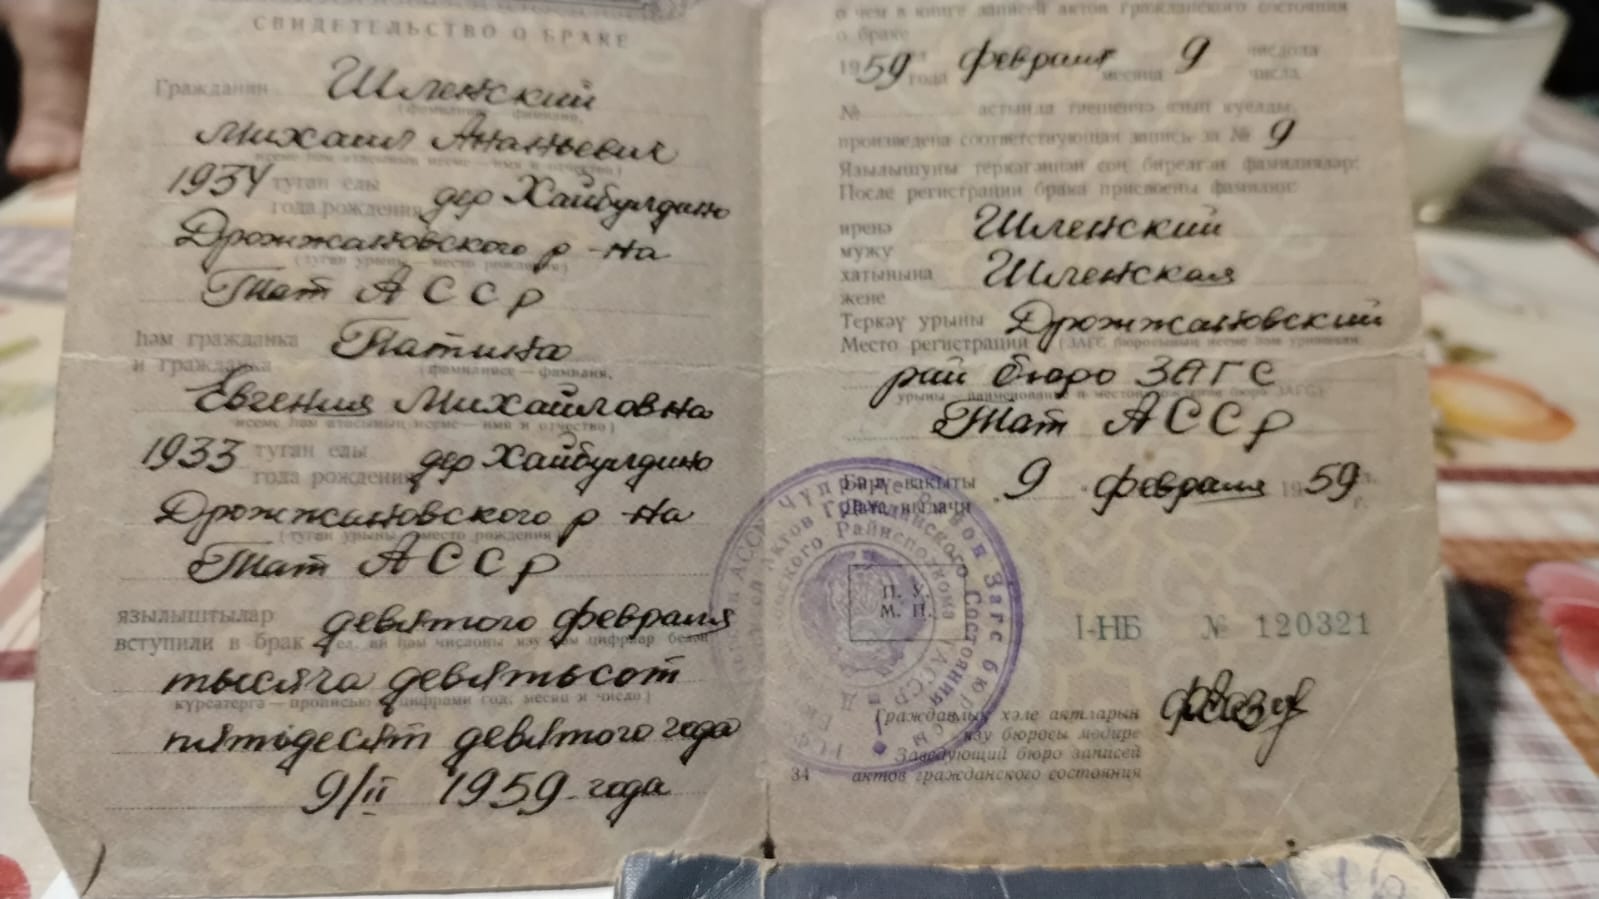 СВИДЕТЕЛЬСТВО О БРАКЕ
Гражданин Шленский
(фамилиясе — фамилия,
Михаил Ананьевич
исеме һәм атасының исеме — имя и отчество)
1934 туган елы
года рождения дер Хайбулдино
Дрожжановского р-на
(туган урыны — место рождения)
Тат АССР
һәм гражданка Патина
и гражданка
(фамилиясе — фамилия,
Евгения Михайловна
исеме һәм атасының исеме — имя и отчество)
1933 туган елы
года рождения дер Хайбулдино
Дрожжановского р-на
(туган урыны — место рождения)
Тат АССР
язылыштылар девятого февраля
вступили в брак
тысяча девятьсот
күрсәтергә — прописью и цифрами год, месяц и число)
пятьдесят девятого года
9/II 1959 года
о чем в книге записей актов гражданского состояния
о браке
1959 года февраля месяца 9 числа
№
произведена соответствующая запись за № 9
Язылышуны теркәгәннән соң бирелгән фамилияләр:
После регистрации брака присвоены фамилии:
иренә Шленский
мужу
хатынына Шленская
жене
Теркәү урыны Дрожжановский
Место регистрации
рай бюро ЗАГС
Тат АССР
Бирү вакыты 9 февраля 1959 г.
Дата выдачи
П. У.
М. П.
I-НБ № 120321
Гражданлык хәле актларын
язу бюросы мөдире
Заведующий бюро записей
актов гражданского состояния
34